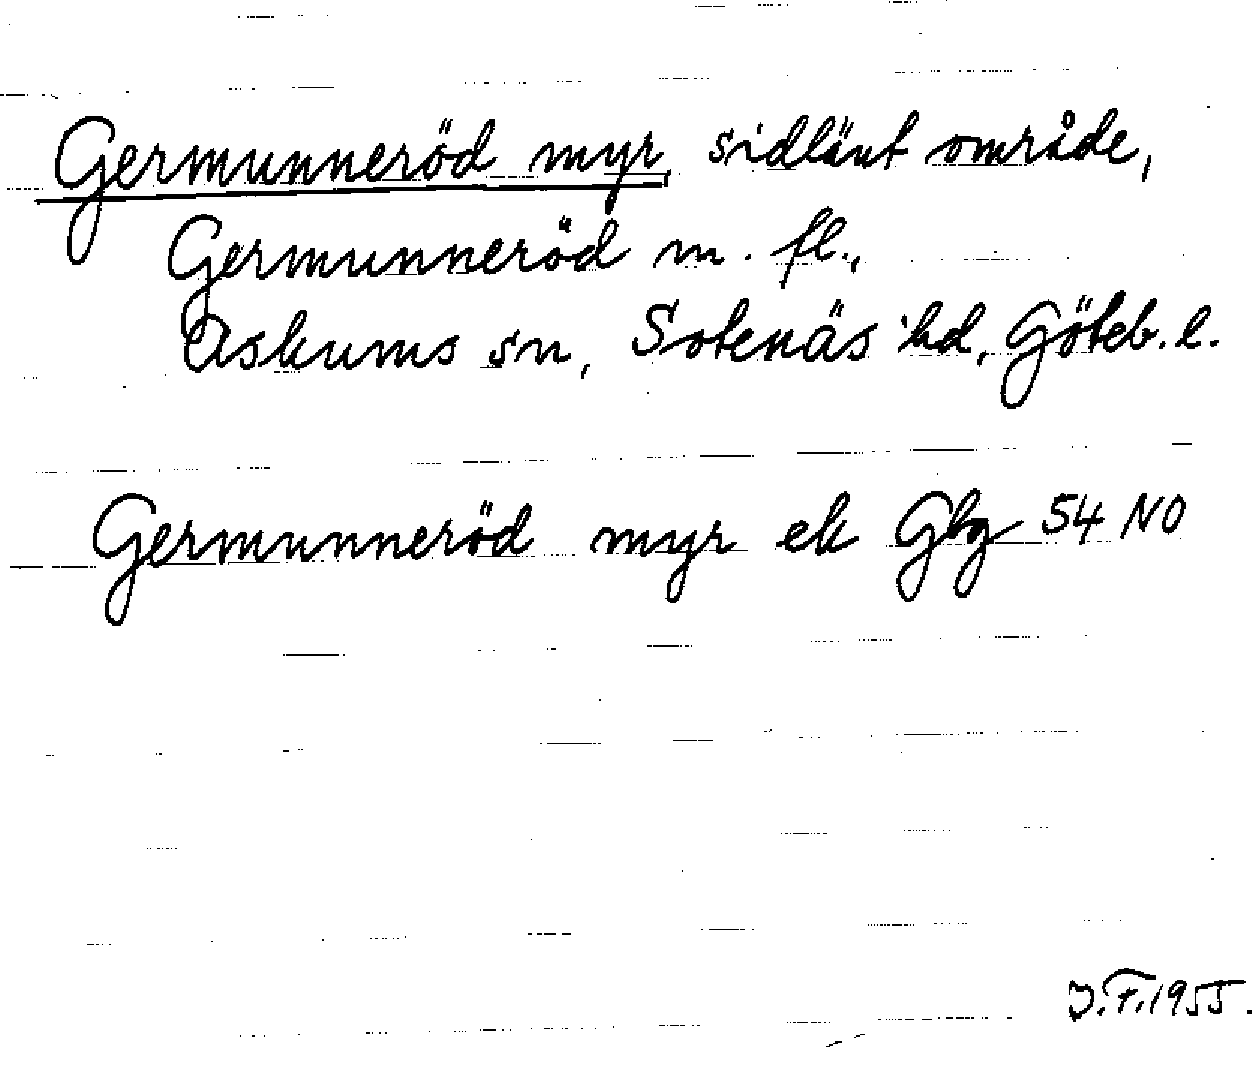 Germunneröd myr, sidlänt område,
Germunneröd m. fl.,
Askums sn, Sotenäs hd, Göteb. l.
Germunneröd myr ek Gbg 54 NO
J.F.1955.